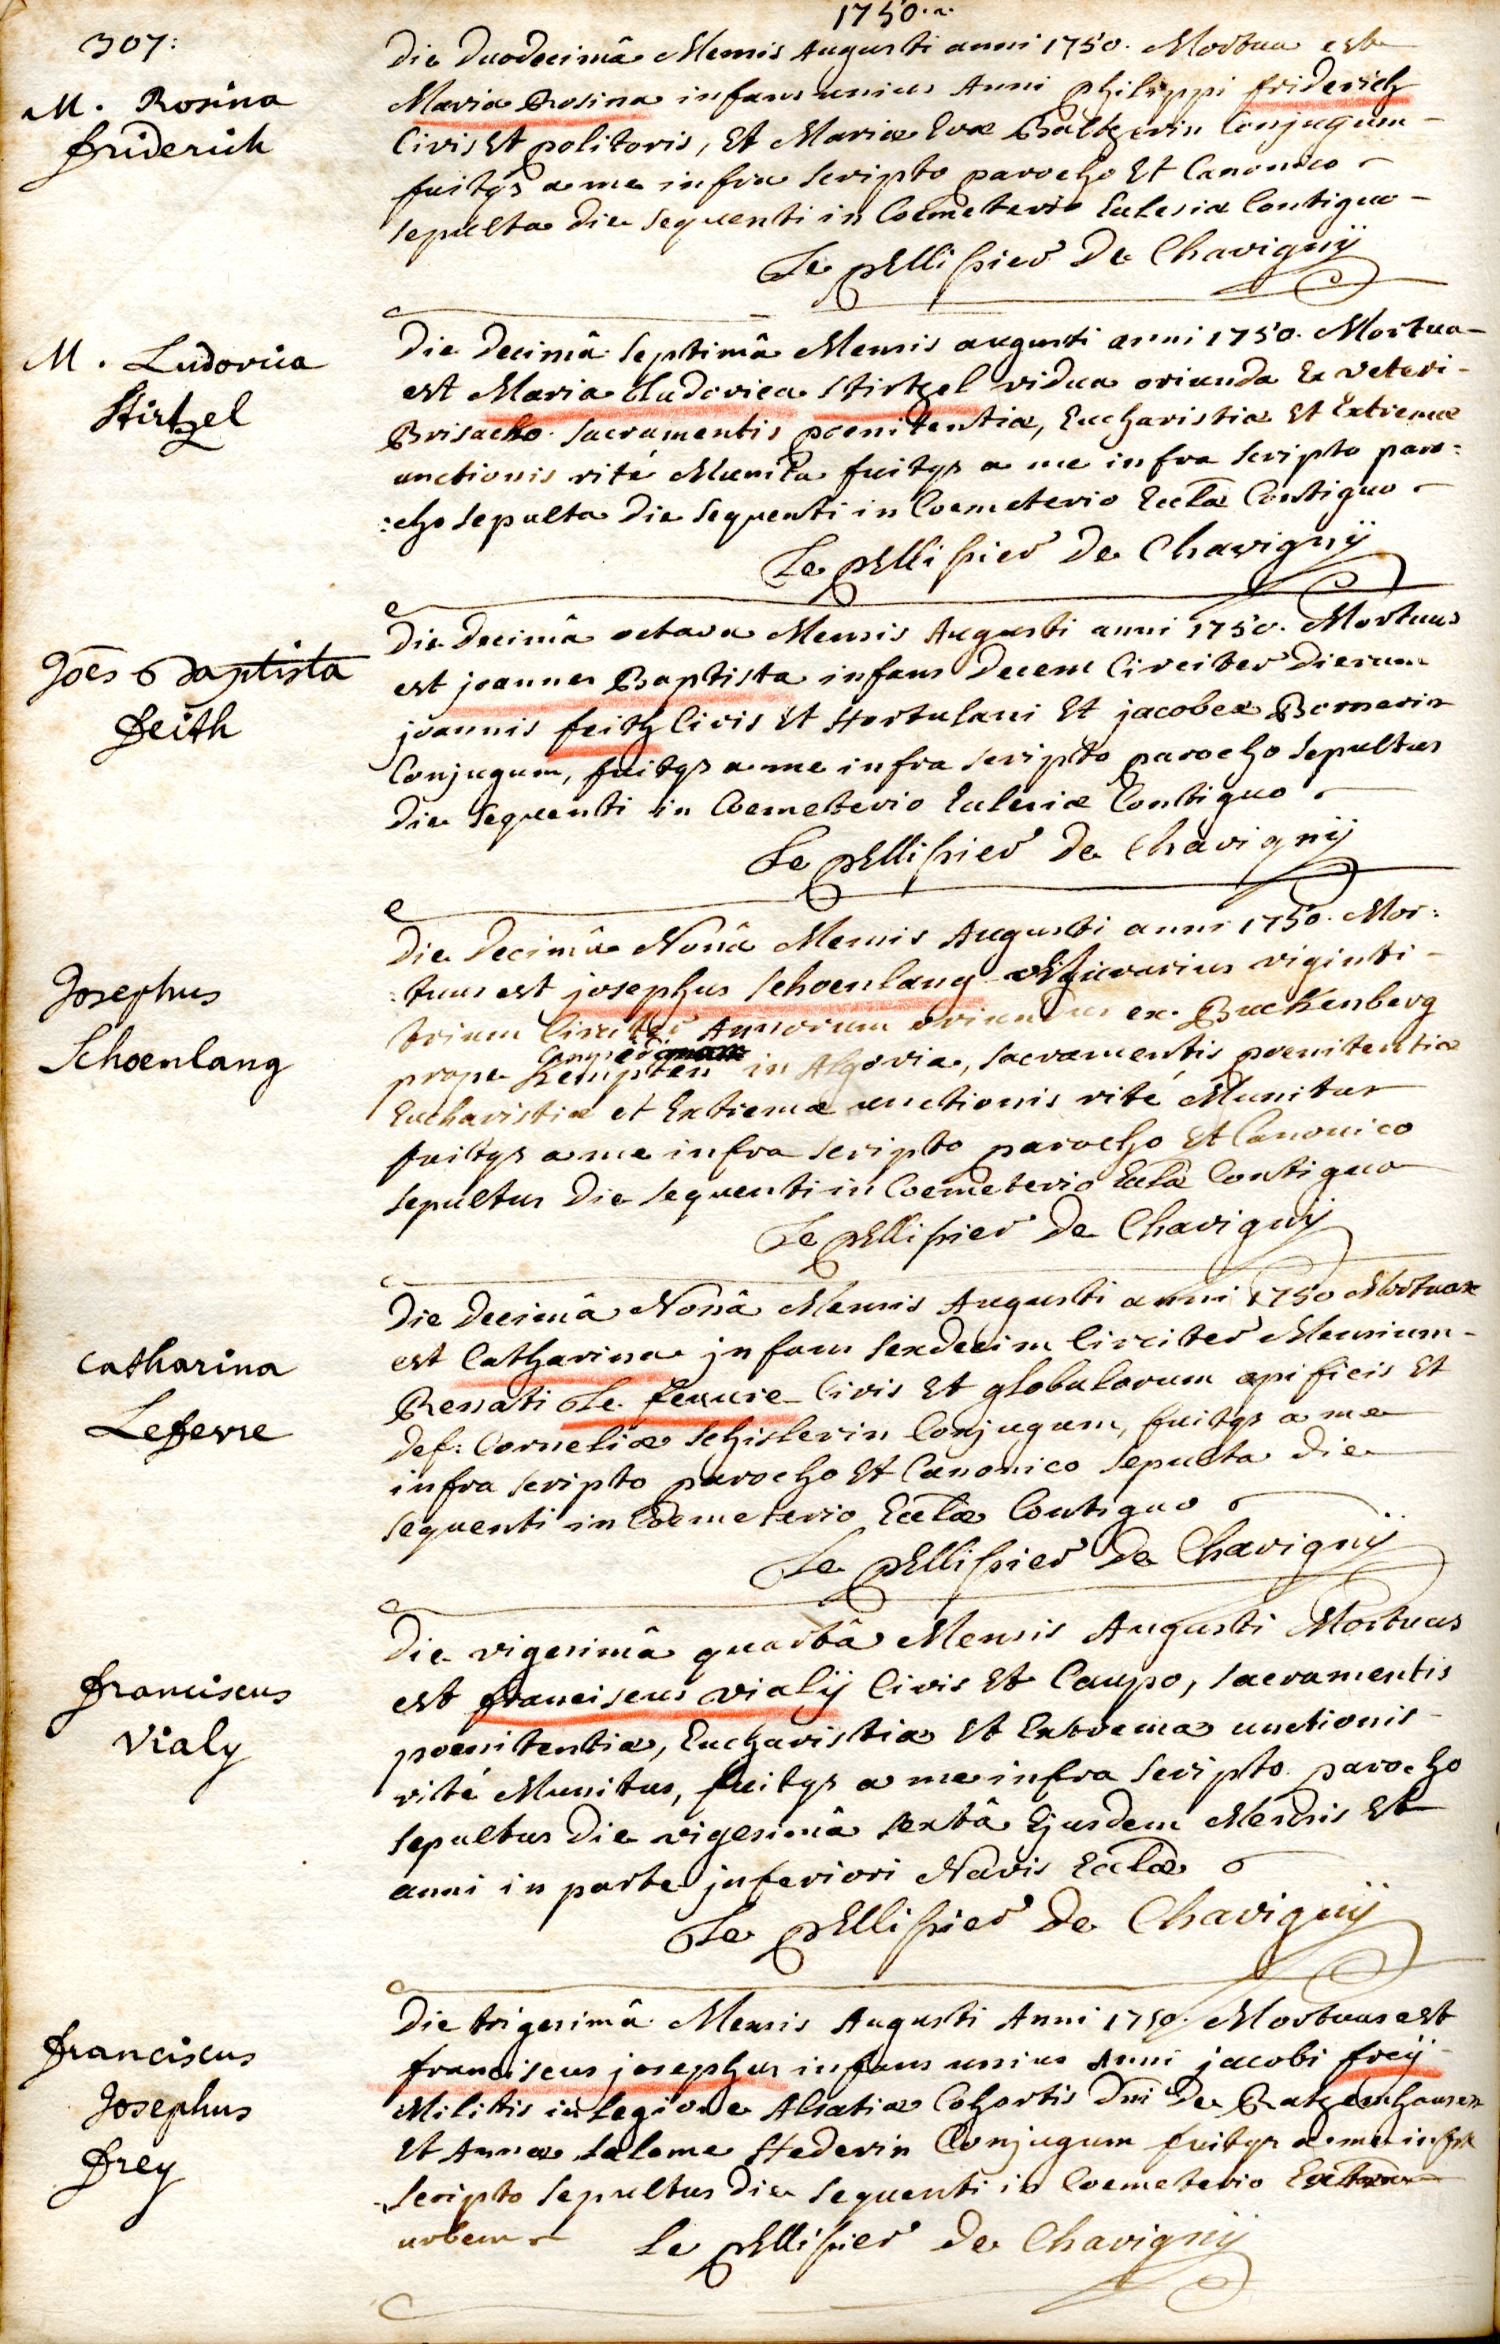 1750.
307:
M. Rosina
friderich
die duodecimâ Mensis Augusti anni 1750. Mortua est
Maria Rosina infans unius Anni philippi friderich
Civis Et politoris, Et Mariæ Evæ Baltzerin Conjugum
fuitqs a me infra scripto parocho Et Canonico
sepulta die sequenti in Coemeterio Eclesiæ Contiguo
Le pEllissier De Chavignÿ
M. Ludovica
Stirtzel
die decimâ septimâ Mensis augusti anni 1750. Mortua
est Maria Ludovica Stirtzel vidua oriunda Ex veteri
Brisacho. sacramentis poenitentiæ, Eucharistiæ Et Extremæ
unctionis rité Munita fuitqs a me infra scripto paro:
:cho sepulta die sequenti in Coemeterio Eclæ Contiguo
Le pEllissier De Chavignÿ
Joês Baptista
feith
die decimâ octava Mensis Augusti anni 1750. Mortuus
est joannes Baptista infans decem Circiter dierum
joannis feith Civis Et Hortulani Et jacobeæ Bornerin
Conjugum, fuitqs a me infra scripto parocho sepultus
die sequenti in Coemeterio Eclesiæ Contiguo
Le pEllissier De Chavignÿ
Josephus
Schoenlang
die decimâ Nonâ Mensis Augusti anni 1750. Mor:
:tuus est josephus Schoenlang viginti
trium Circiter Annorum oriundus ex Buckenberg
prope Kempten in Algovia, sacramentis poenitentiæ
Eucharistiæ et Extremæ unctionis rité Munitus
fuitqs a me infra scripto parocho Et Canonico
sepultus die sequenti in Coemeterio Eclæ Contiguo
Le pEllissier De Chavignÿ
Catharina
Lefevre
die decimâ Nonâ Mensis Augusti anni 1750 Mortua
est Catharina jnfans sexdecim Circiter Mensium
Renati Le fevure Civis Et globulorum opificis Et
def: Corneliæ Schislerin Conjugum, fuitqs a me
infra scripto parocho Et Canonico sepulta die
sequenti in Coemeterio Eclæ Contiguo
Le pEllissier De Chavignÿ
franciscus
vialy
die vigesimâ quartâ Mensis Augusti Mortuus
est franciscus vialÿ Civis Et Caupo, sacramentis
poenitentiæ, Eucharistiæ Et Extremæ unctionis
rité Munitus, fuitqs a me infra scripto parocho
sepultus die vigesimâ sextâ Ejusdem Mensis Et
anni in parte jnferiori Navis Eclæ
Le pEllissier De Chavignÿ
franciscus
Josephus
frey
die trigesimâ Mensis Augusti Anni 1750. Mortuus est
franciscus josephus infans unius Anni jacobi freÿ
Militis in legione Alsatiæ Cohortis Dni De Ratzenhausen
Et Annæ Salome Stederin Conjugum fuitqs a me infra
scripto sepultus die sequenti in Coemeterio Extra
urbem
Le pEllissier De Chavignÿ